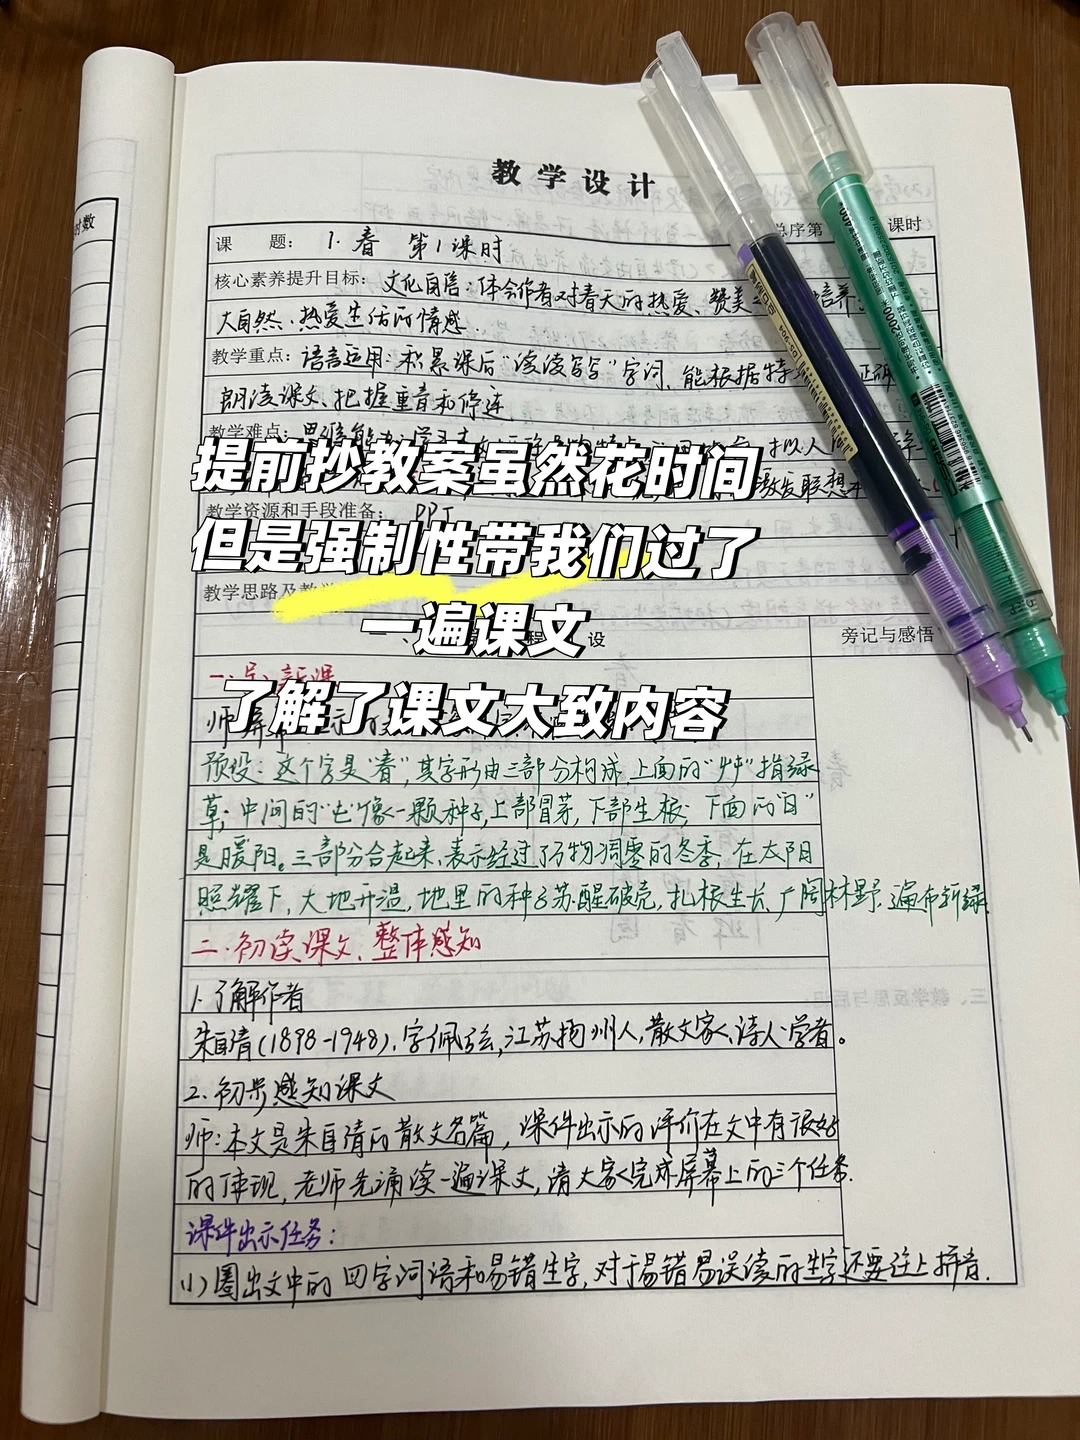 教学设计
课 题： 1.春 第1课时
总序第 课时
时数
核心素养提升目标：文化自信：体会作者对春天的热爱、赞美 培养
大自然、热爱生活的情感.
教学重点：语言运用：积累课后"读读写写"字词，能根据特 正确
朗读课文、把握重音和停连
教学难点：思维能力
拟人
激发联想
教学资源和手段准备： PPT
教学思路及教学
提前抄教案虽然花时间
但是强制性带我们过了
一遍课文
了解了课文大致内容
一、 程 设
旁记与感悟
一、导入新课
师：屏 示的
预设：这个字是"春"，其字形由三部分构成，上面的"艹"指绿
草；中间的"屯"像一颗种子，上部冒芽，下部生根；下面的"日"
是暖阳。三部分合起来，表示经过了万物凋零的冬季，在太阳
照耀下，大地升温，地里的种子苏醒破壳，扎根生长，广阔林野，遍布新绿.
二、初读课文，整体感知
1.了解作者
朱自清(1898-1948)，字佩弦，江苏扬州人，散文家、诗人、学者。
2.初步感知课文
师：本文是朱自清的散文名篇，课件出示的评价在文中有很好
的体现，老师先诵读一遍课文，请大家完成屏幕上的三个任务.
课件出示任务：
(1)圈出文中的四字词语和易错生字，对于易错易误读的生字还要注上拼音.